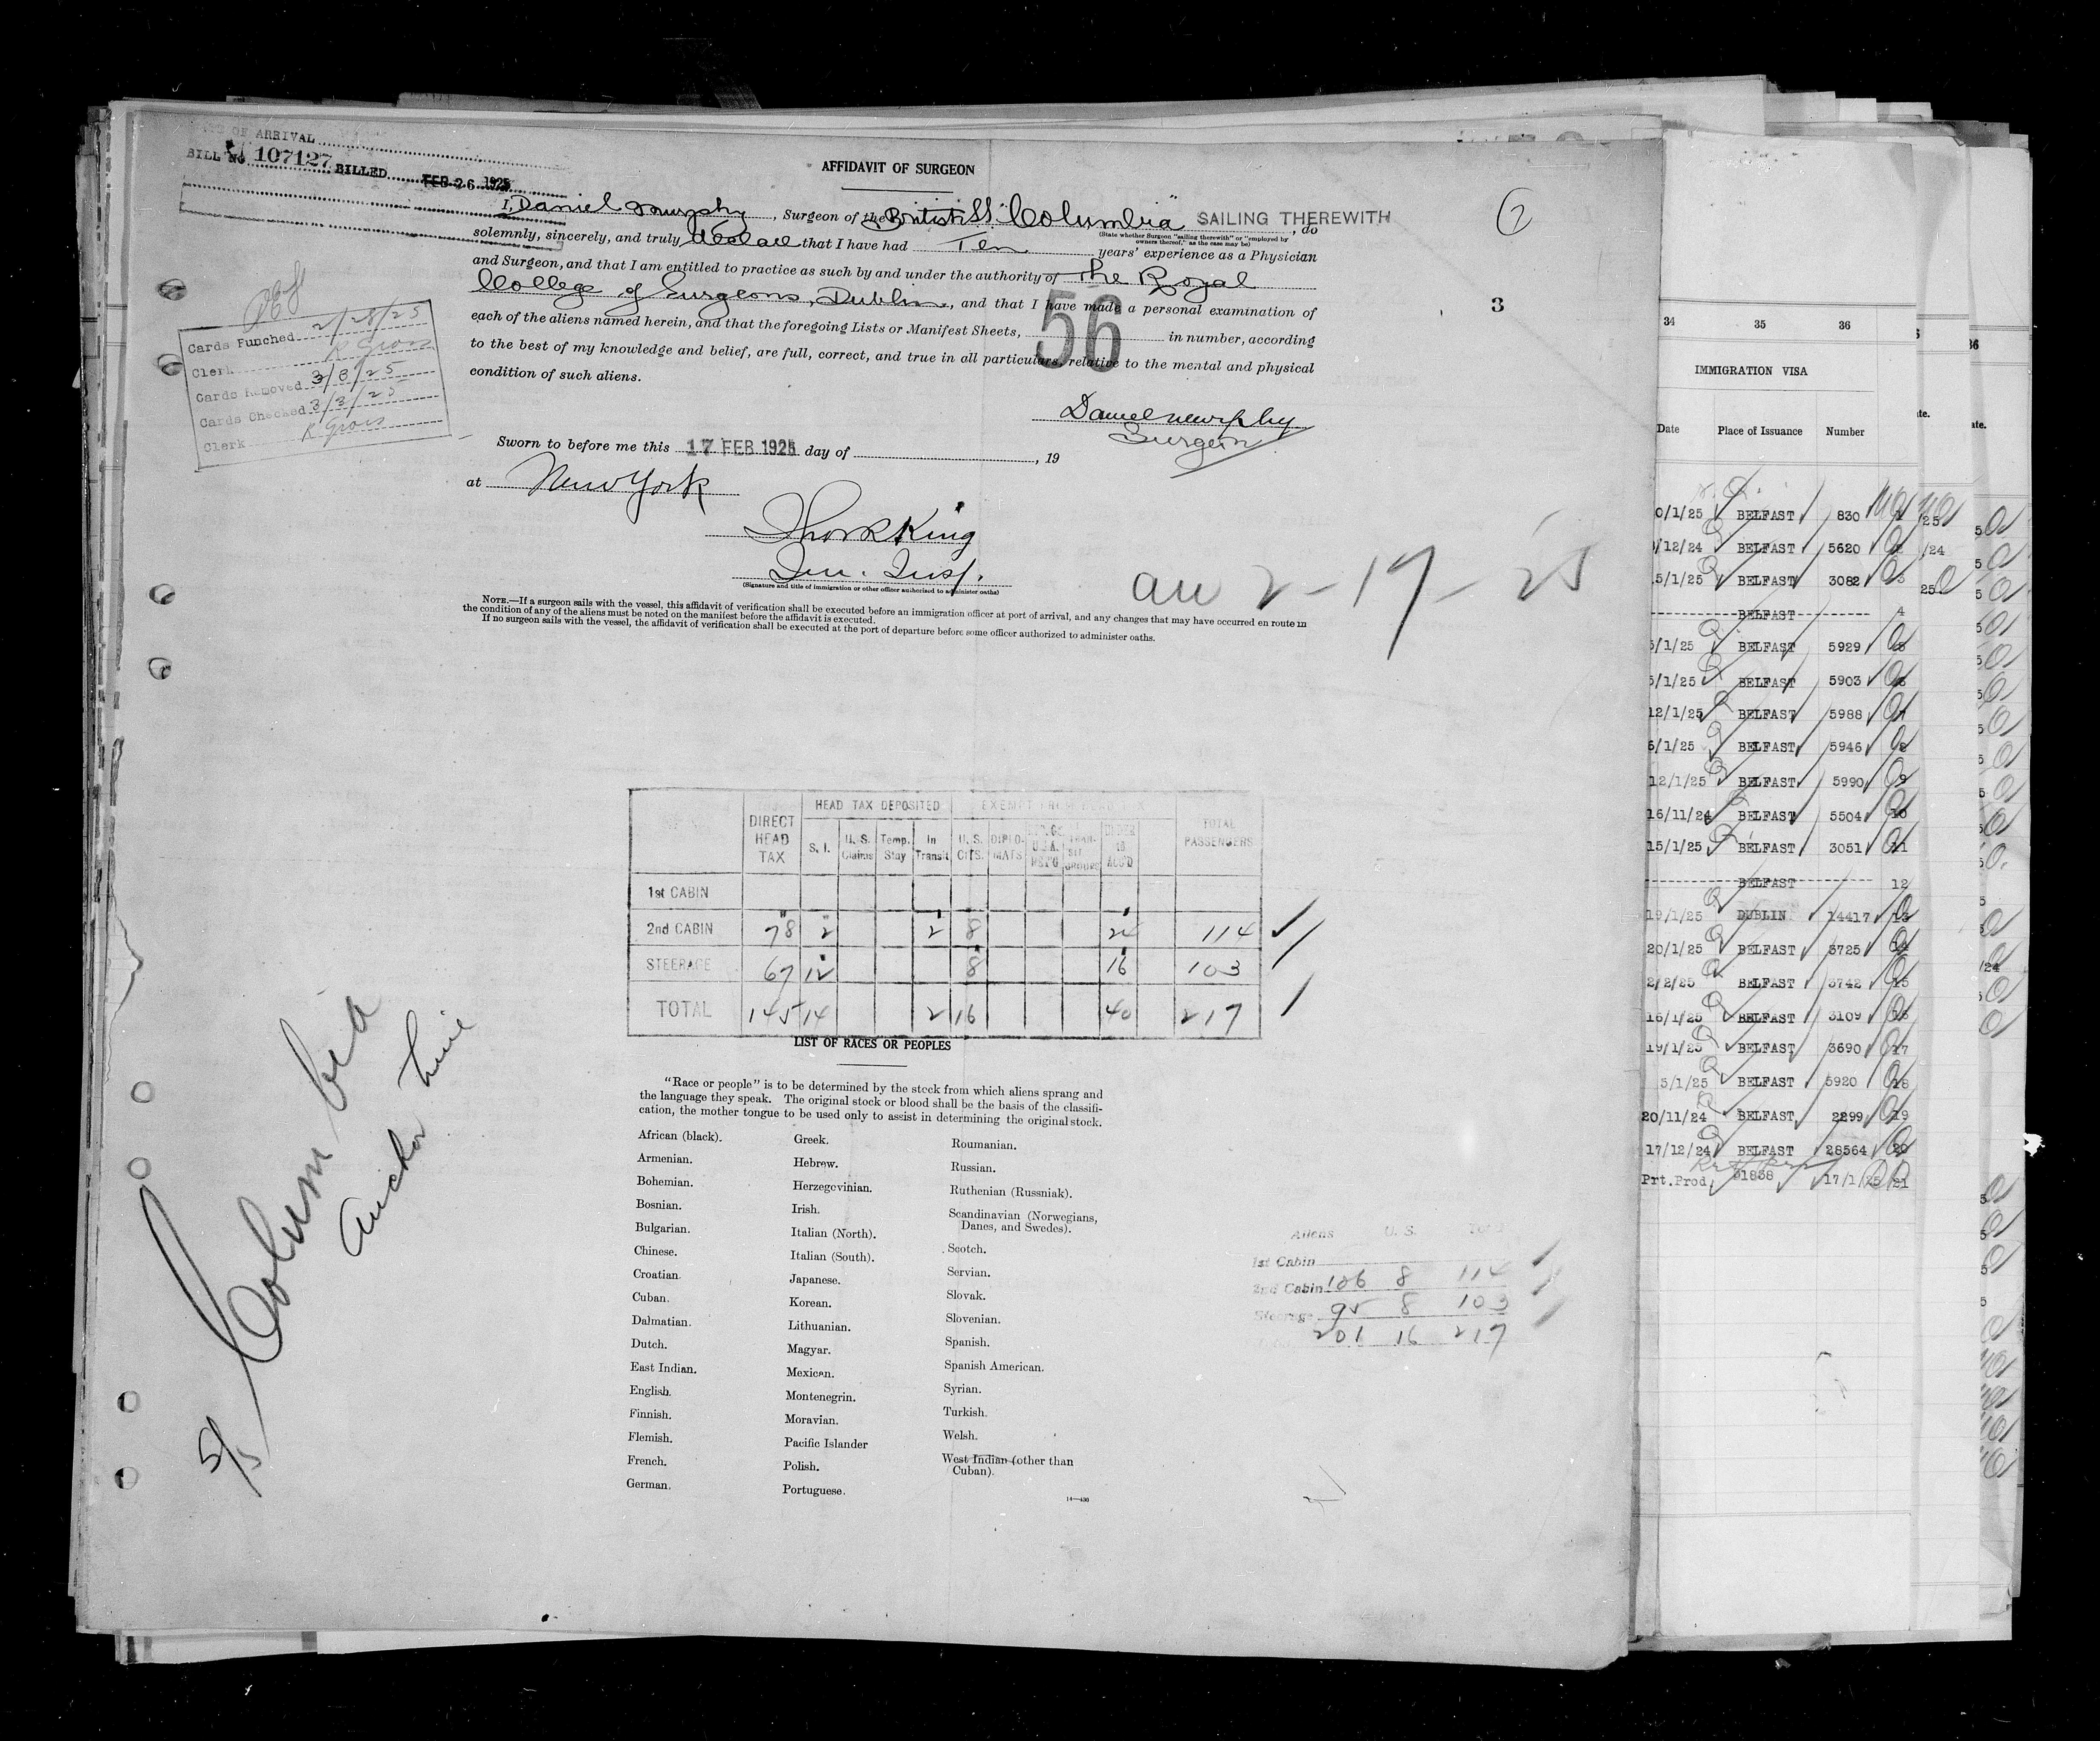 DATE OF ARRIVAL
BILL No 107127 BILLED FEB 26 1925
AFFIDAVIT OF SURGEON
6
I, Daniel Murphy, Surgeon of the British SS "Columbia" SAILING THEREWITH, do
(State whether Surgeon "sailing therewith" or "employed by
owners thereof," as the case may be)
solemnly, sincerely, and truly declare that I have had Ten years' experience as a Physician
and Surgeon, and that I am entitled to practice as such by and under the authority of The Royal
College of Surgeons, Dublin, and that I have made a personal examination of
3
each of the aliens named herein, and that the foregoing Lists or Manifest Sheets, in number, according
56
to the best of my knowledge and belief, are full, correct, and true in all particulars, relative to the mental and physical
condition of such aliens.
Cards Punched 2/28/25
Clerk R Gross
Cards Removed 3/3/25
Cards Checked 3/3/25
Clerk R Gross
Daniel Murphy
Surgeon
Sworn to before me this 17 FEB 1925 day of , 19
at New York
King
Imm. Insp.
(Signature and title of immigration or other officer authorized to administer oaths)
2-19-25
NOTE.—If a surgeon sails with the vessel, this affidavit of verification shall be executed before an immigration officer at port of arrival, and any changes that may have occurred en route in
the condition of any of the aliens must be noted on the manifest before the affidavit is executed.
If no surgeon sails with the vessel, the affidavit of verification shall be executed at the port of departure before some officer authorized to administer oaths.
HEAD TAX DEPOSITED EXEMPT FROM HEAD TAX
DIRECT HEAD TAX S. I. U. S. Claims Temp. Stay In Transit U. S. CITS. DIPLOMATS UNDER 16 ACC'D TOTAL PASSENGERS
1st CABIN
2nd CABIN 78 2 2 8 24 114
STEERAGE 67 12 8 16 103
TOTAL 145 14 2 16 40 217
LIST OF RACES OR PEOPLES
"Race or people" is to be determined by the stock from which aliens sprang and
the language they speak. The original stock or blood shall be the basis of the classifi-
cation, the mother tongue to be used only to assist in determining the original stock.
African (black).
Armenian.
Bohemian.
Bosnian.
Bulgarian.
Chinese.
Croatian.
Cuban.
Dalmatian.
Dutch.
East Indian.
English.
Finnish.
Flemish.
French.
German.
Greek.
Hebrew.
Herzegovinian.
Irish.
Italian (North).
Italian (South).
Japanese.
Korean.
Lithuanian.
Magyar.
Mexican.
Montenegrin.
Moravian.
Pacific Islander
Polish.
Portuguese.
Roumanian.
Russian.
Ruthenian (Russniak).
Scandinavian (Norwegians,
Danes, and Swedes).
Scotch.
Servian.
Slovak.
Slovenian.
Spanish.
Spanish American.
Syrian.
Turkish.
Welsh.
West Indian (other than
Cuban).
14—436
Aliens U. S. Total
1st Cabin
2nd Cabin 106 8 114
Steerage 95 8 103
201 16 217
S/S Columbia
Anchor Line
34 35 36
IMMIGRATION VISA
Date Place of Issuance Number
0/1/25 BELFAST 830 1
/12/24 BELFAST 5620 2
5/1/25 BELFAST 3082 3
BELFAST 4
5/1/25 BELFAST 5929 5
5/1/25 BELFAST 5903 6
12/1/25 BELFAST 5988 7
6/1/25 BELFAST 5946 8
12/1/25 BELFAST 5990 9
16/11/24 BELFAST 5504 10
15/1/25 BELFAST 3051 11
BELFAST 12
19/1/25 DUBLIN 14417 13
20/1/25 BELFAST 3725 14
2/2/25 BELFAST 3742 15
16/1/25 BELFAST 3109 16
19/1/25 BELFAST 3690 17
5/1/25 BELFAST 5920 18
20/11/24 BELFAST 2299 19
17/12/24 BELFAST 28564 20
Prt.Prod. 91838 17/1/25 21